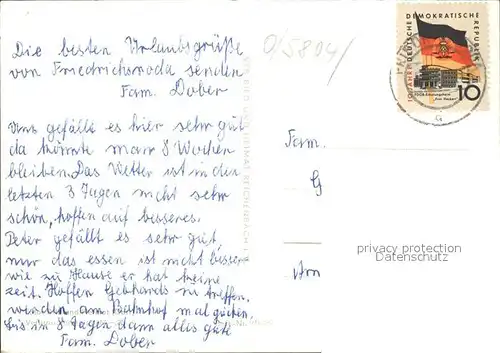 Die besten Urlaubsgrüße
von Friedrichsroda senden
Fam. Dober
Uns gefällts es hier sehr gut
da könnte man 8 Wochen
bleiben. Das Wetter ist in den
letzten 3 Tagen nicht sehr
schön, hoffen auf besseres.
Peter gefällt es sehr gut,
nur das essen ist nicht besser
wie zu Hause er hat keine
zeit. Hoffen Gebhards zu treffen,
werden am Bahnhof mal gucken.
bis in 8 Tagen dann alles gute
Fam. Dober
0/5804/
10 JAHRE DEUTSCHE DEMOKRATISCHE REPUBLIK
10
Fam.
G
Am
privacy protection
Datenschutz